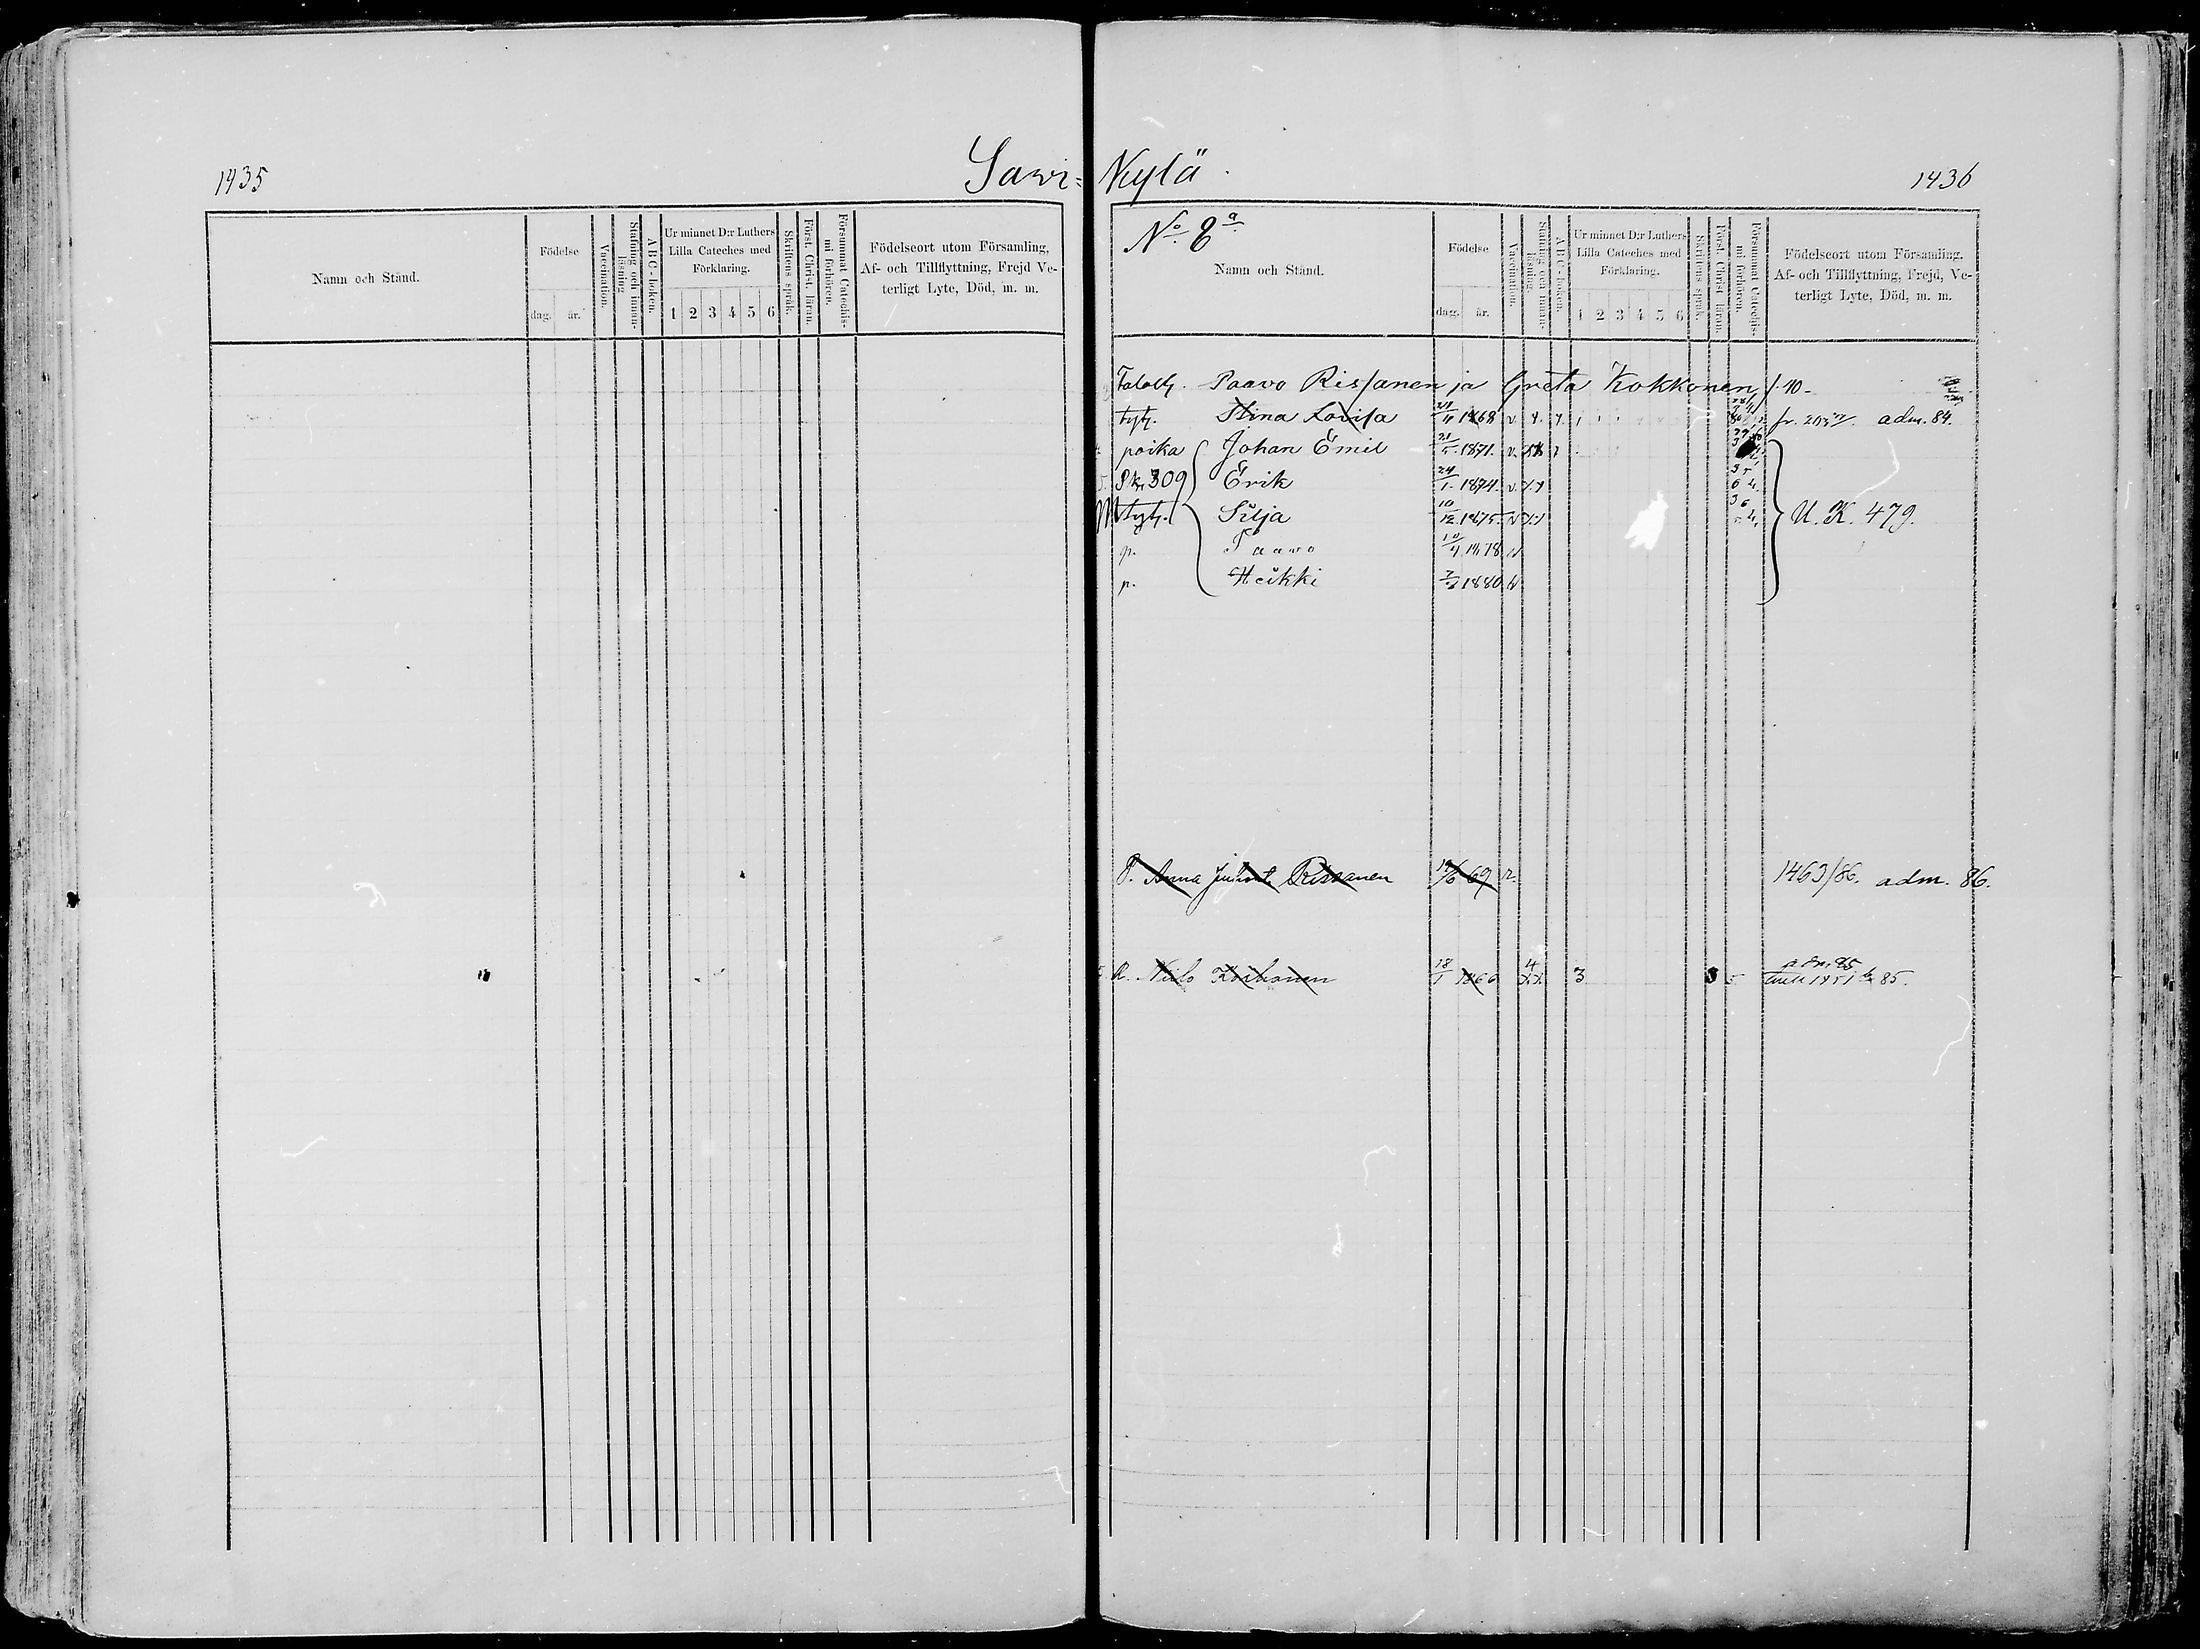 1435
Sawi=
Namn och Stånd.
Födelse
dag.
år.
Vaccination.
Stafning och innan-
läsning
ABC-boken.
Ur minnet D:r Luthers
Lilla Cateches med
Förklaring.
1 2 3 4 5 6
Skriftens språk.
Först. Christ. läran.
Försummat Catechis-
mi förhören.
Födelseort utom Församling,
Af- och Tillflyttning, Frejd Ve-
terligt Lyte, Död, m. m.
Nylä.
1436
No 8a
Namn och Stånd.
Födelse
dag.
år.
Vaccination.
Stafning och innan-
läsning.
ABC-boken.
Ur minnet D:r Luthers
Lilla Cateches med
Förklaring.
1 2 3 4 5 6
Skriftens språk.
Först. Christ läran.
Försummat Catechis-
mi förhören.
Födelseort utom Församling.
Af- och Tillflyttning, Frejd, Ve-
terligt Lyte, Död, m. m.
Paavo Rissanen ja Greta Kokkonen f. 10
tyt. Stina Lovisa 1868 v. adm. 84.
poika Johan Emil 21/5 1871. v.
Pk. 309 Erik 24/1 1874. v.
tyt. Silja 10/12 1875. v U. K. 479.
p. Paavo 10/4 1878 v
p. Heikki 1880 v
P. Anna Rissanen 69 v. 1463/86. adm. 86.
R. Niilo Korhonen 18/1 1866 3 5 adm. 85
1451 85.